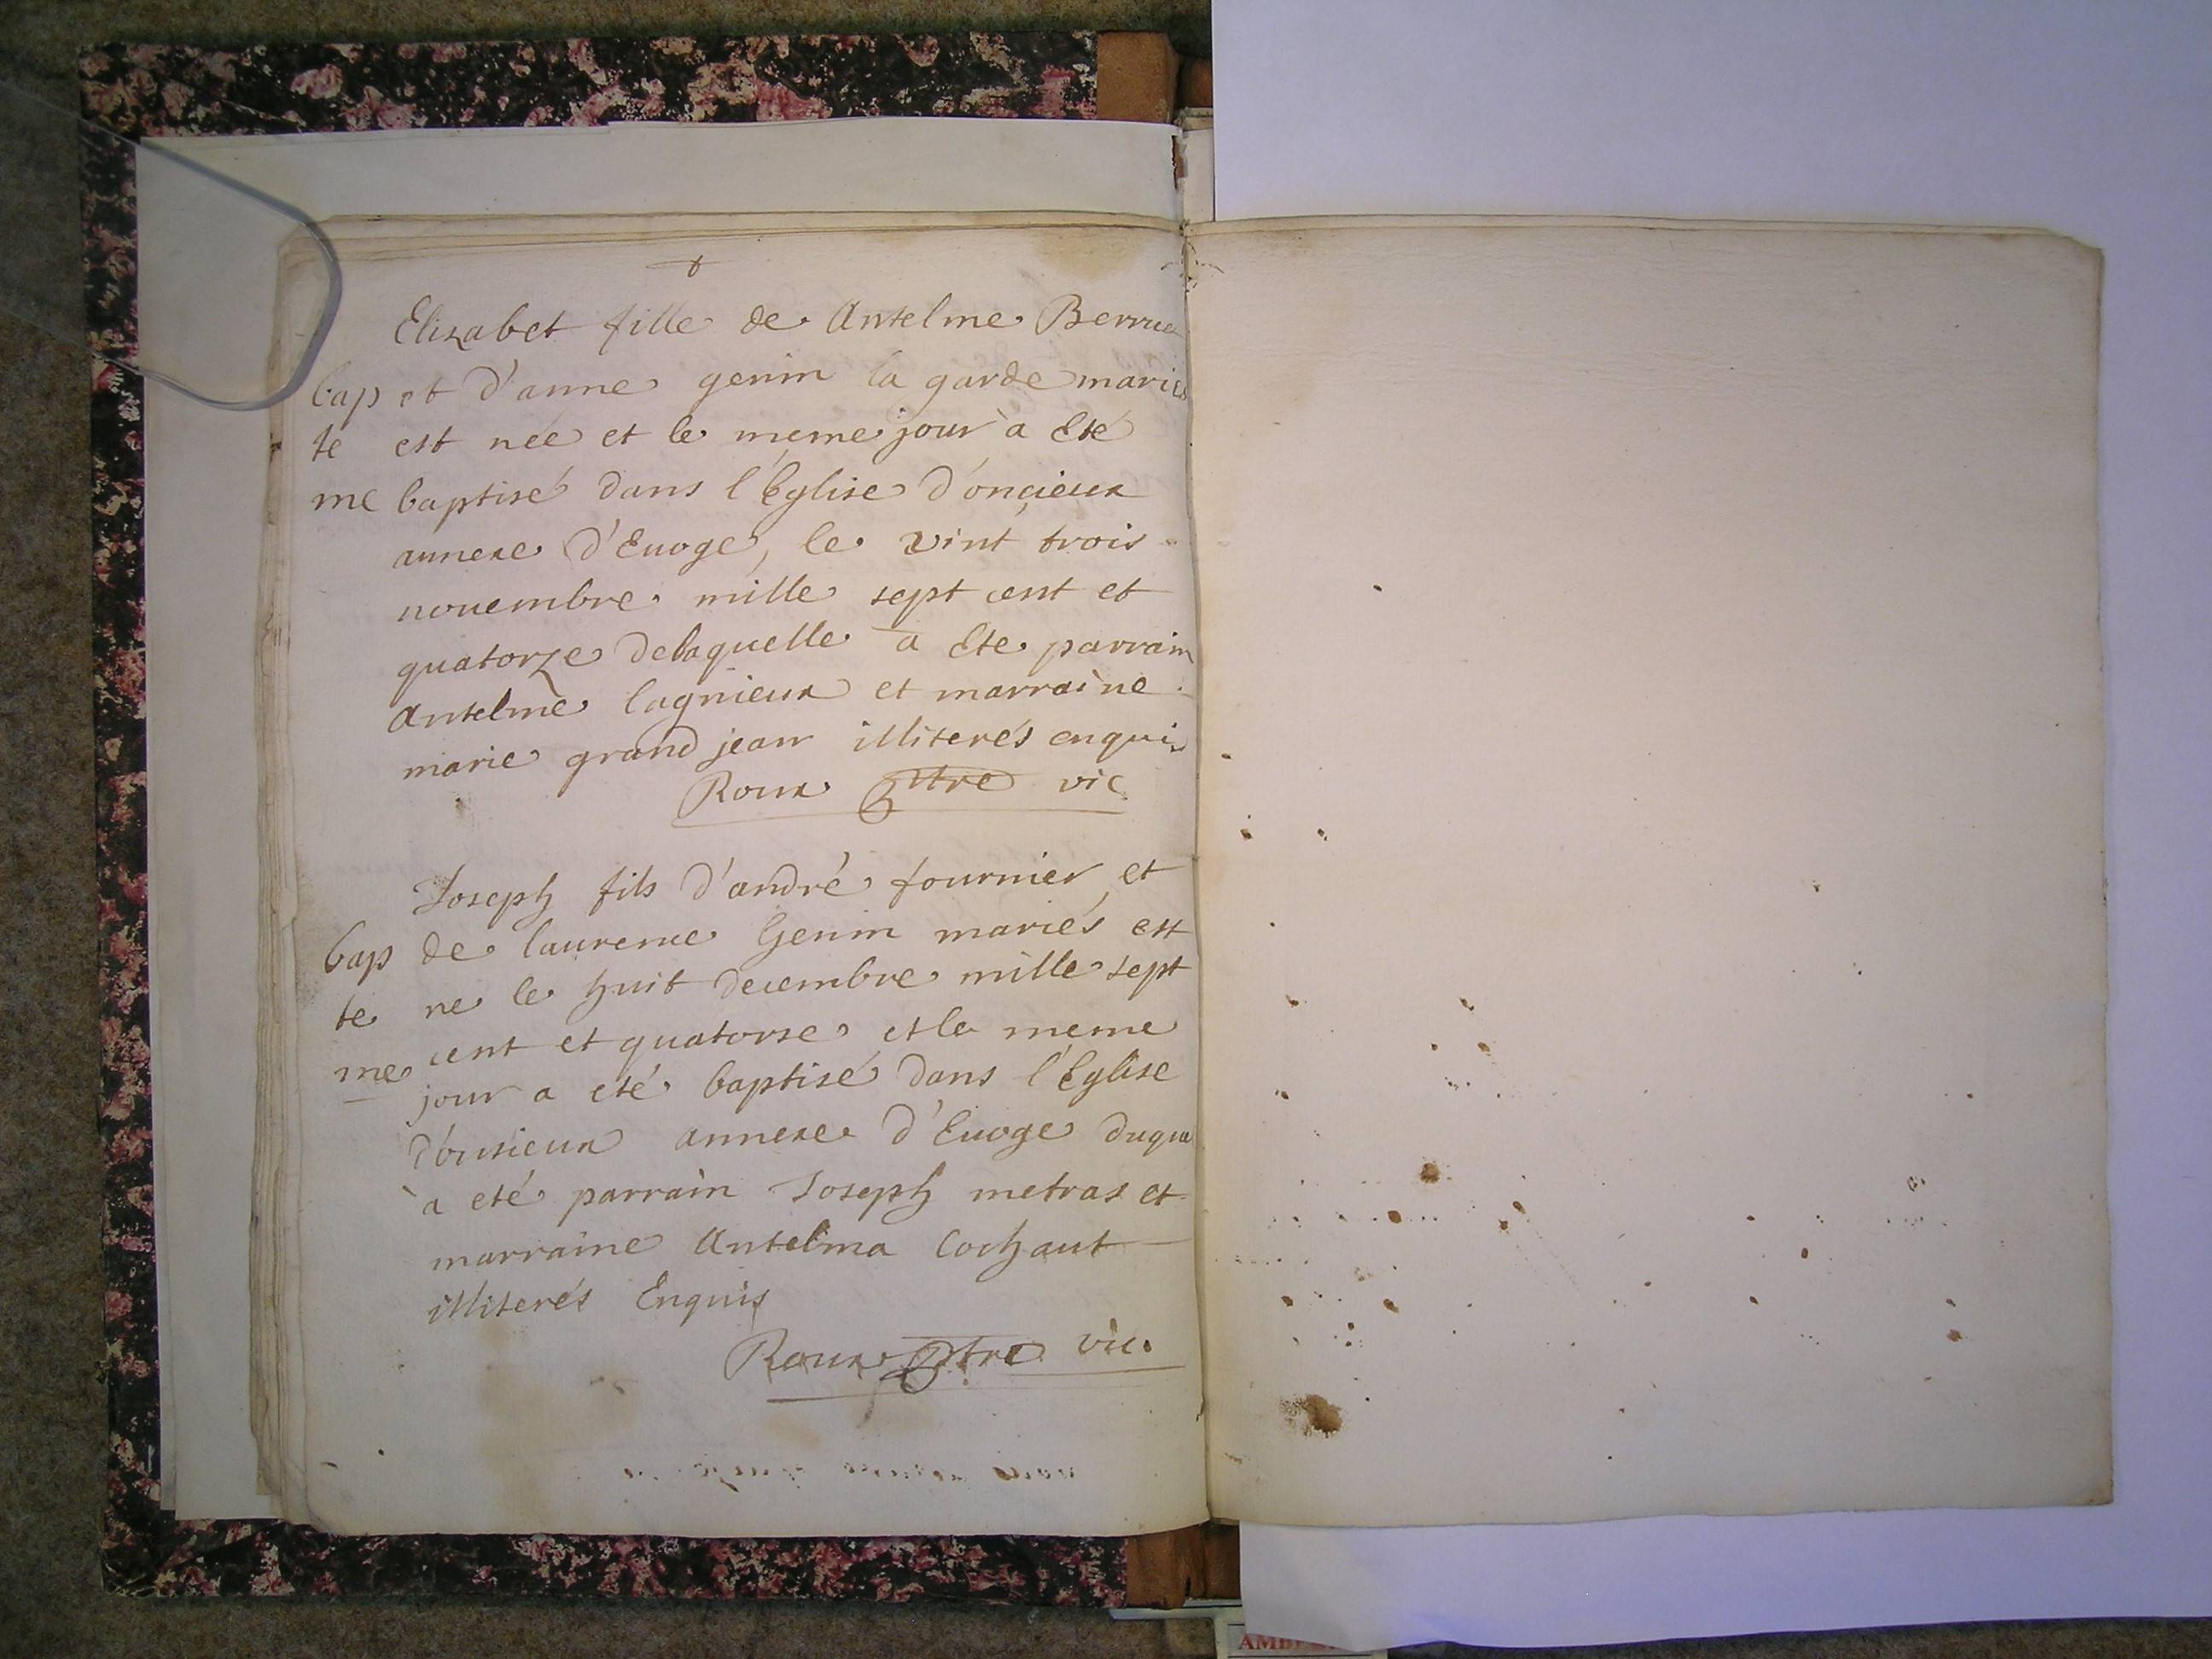 Elizabet fille de Antelme Berrue
bap et d'anne genin la garde mariés
te est neé et le meme jour à Eté
me baptisé dans l'Eglise d'oncieux
annexe d'Euoge, le vint trois
nouembre mille sept cent et
quatorze delaquelle a Ete parrain
Antelme lagnieux et marraine
marie grand jean illiterés enquis
Roux ptre vic
Joseph fils d'andré fournier et
bap de laurence Genin mariés est
te ne le huit decembre mille sept
me cent et quatorse et le meme
jour a eté baptisé dans l'Eglise
d'onsieux annexe d'Euoge duque
à eté parrain Joseph metras et
marraine Antelma Cochaut
illiterés Enquis
Roux ptre vic.